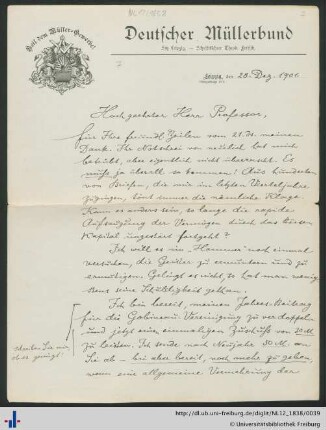 Heil dem Müller-Gewerbe!
Deutscher Müllerbund
Sitz Leipzig. — Schriftleiter Theod. Fritsch.
Leipzig, am 28. Dez. 1906
Hochgeehrter Herr Professor,
für Ihre freundl. Zeilen vom 21. ds. meinen
Dank. Ihr Notschrei von neulich hat mich
betrübt, aber eigentlich nicht überrascht. Es
muß ja überall so kommen! Aus hunderten
von Briefen, die mir im letzten Vierteljahre
zugingen, tönt immer die nämliche Klage.
Kann es anders sein, so lange die rapide
Aufsaugung der Vermögen durch das
Kapital ungestört fortgeht?
Ich will es im "Hammer" noch einmal
versuchen, die Geister zu ermuntern und zu
ermutigen. Gelingt es nicht, so hat man wenig-
stens seine Schuldigkeit gethan.
Ich bin bereit, meinen Jahres-Beitrag
für die Gobineau-Vereinigung zu verdoppeln
und jetzt einen einmaligen Zuschuß von 20 M.
zu leisten. Ich sende nach Neujahr 30 M. an
Sie ab – bin aber bereit, noch mehr zu geben,
wenn eine allgemeine Vermehrung der
schreiben Sie mir,
ob es genügt!
http://dl.ub.uni-freiburg.de/diglit/NL12_1838/0039
© Universitätsbibliothek Freiburg